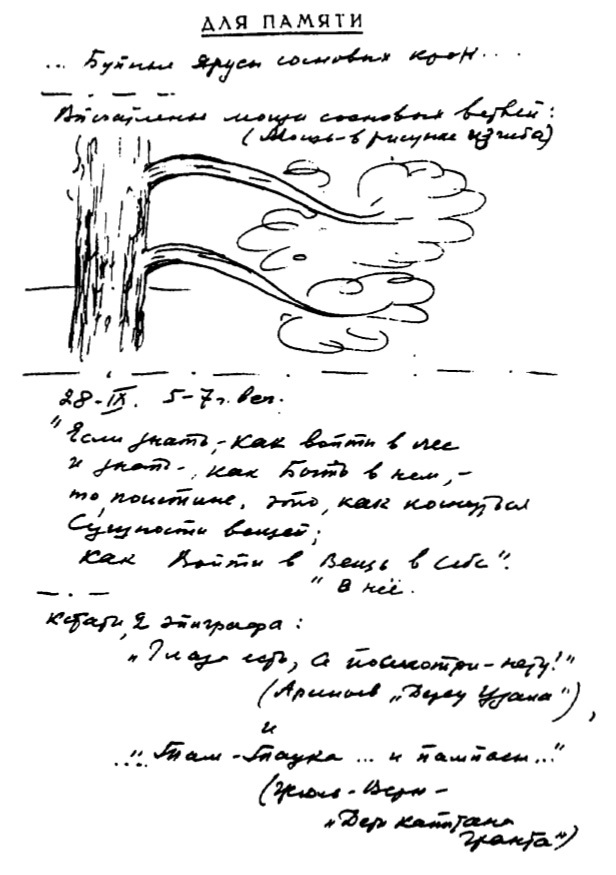 ДЛЯ ПАМЯТИ
... Буйные ярусы сосновых крон...
Впечатленье мощи сосновых ветвей:
(Мощь - в рисунке изгиба)
28-IX. 5-7 ч. веч.
"Если знать, - как войти в лес
и знать -, как Быть в нем, -
то, поистине, это, как коснуться
Сущности вещей;
как Войти в Вещь в себе".
" В неё.
Кстати, 2 эпиграфа:
„Глаза есть, а посмотри - нету!"
(Арсеньев „Дерсу Узала"),
и
...„Там - Таука ... и пампасы..."
(Жюль - Верн -
„Дети капитана
Гранта")